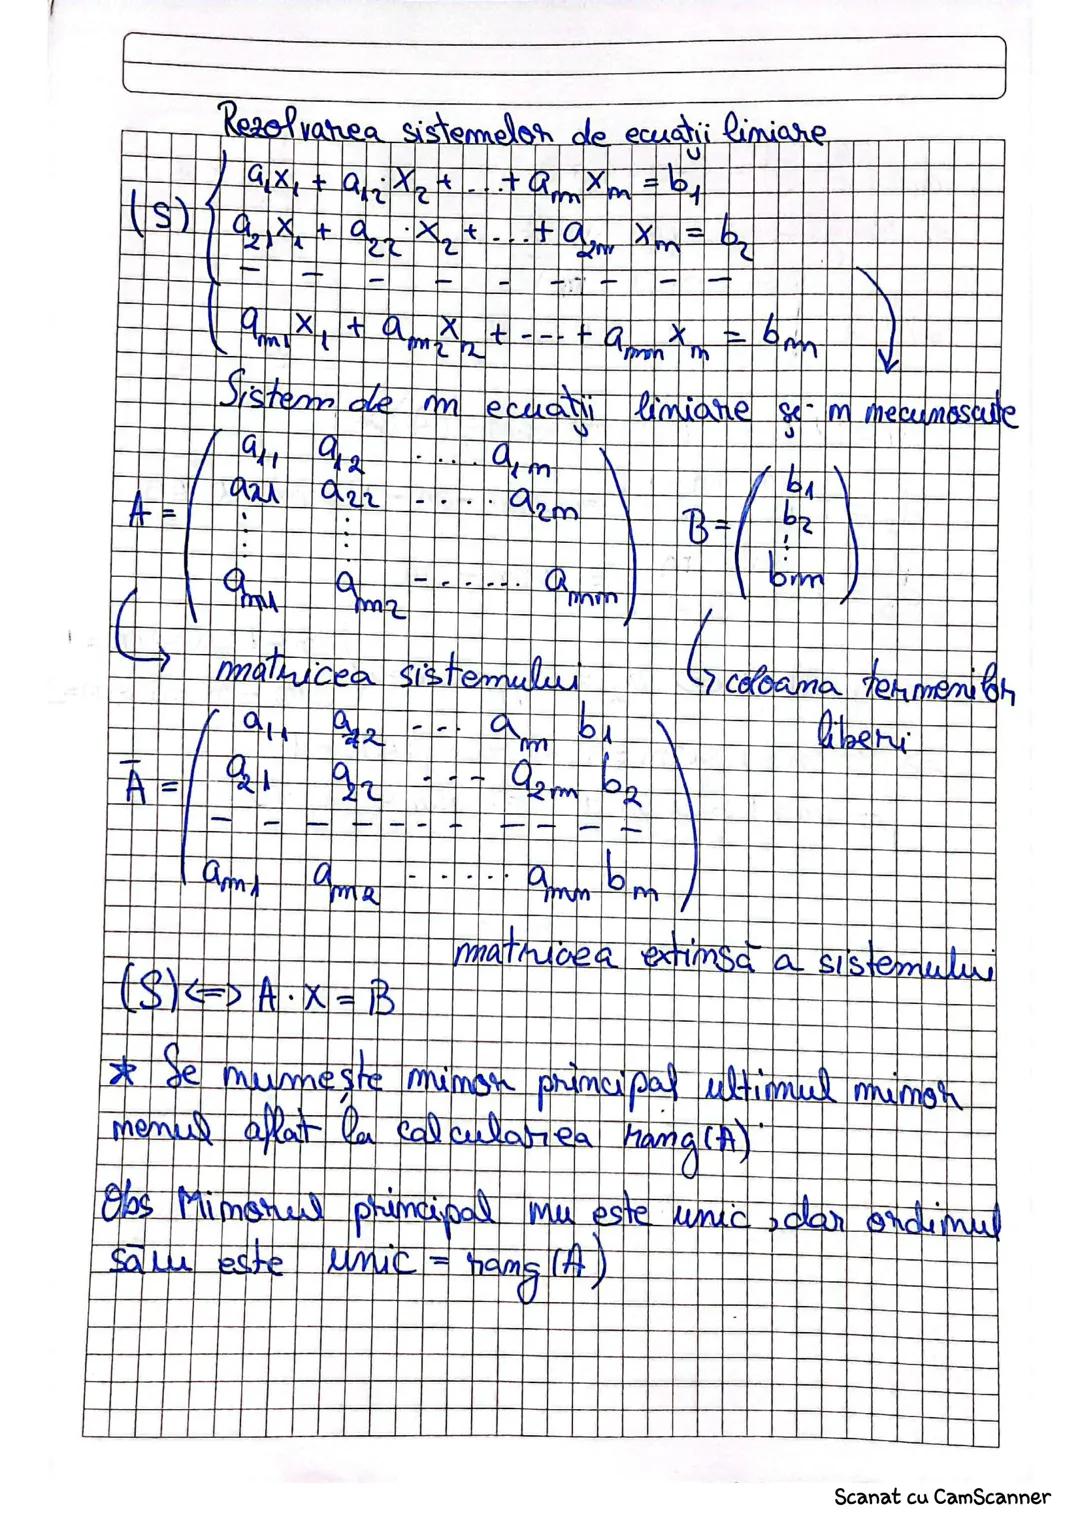 Rezolvarea sistemelor de ecuații liniare
(S) { a₁x₁ + a₁₂·x₂ + ... + aₙxₙ = b₁
a₂₁x₁ + a₂₂·x₂ + ... + a₂ₙ xₙ = b₂
- - - - - - - - -
aₘ₁x₁ + aₘ₂x₂ + --- + aₘₙxₙ = bₘ
Sistem de m ecuații liniare și n necunoscute
A = ( a₁₁ a₁₂ .... a₁ₙ
a₂₁ a₂₂ ..... a₂ₙ
⋮ ⋮
aₘ₁ aₘ₂ ....... aₘₙ )
B = ( b₁
b₂
⋮
bₘ )
↳ matricea sistemului
↳ coloana termenilor
liberi
Ā = ( a₁₁ a₂₂ --- aₙ b₁
a₂₁ a₂₂ --- a₂ₙ b₂
- - - - - - - - - - -
aₘ₁ aₘ₂ ...... aₘₙ bₘ )
matricea extinsă a sistemului
(S) <=> A · X = B
* Se numește minor principal ultimul minor
nenul aflat la calcularea rang(A)
Obs Minorul principal nu este unic, dar ordinul
său este unic = rang(A)
Scanat cu CamScanner